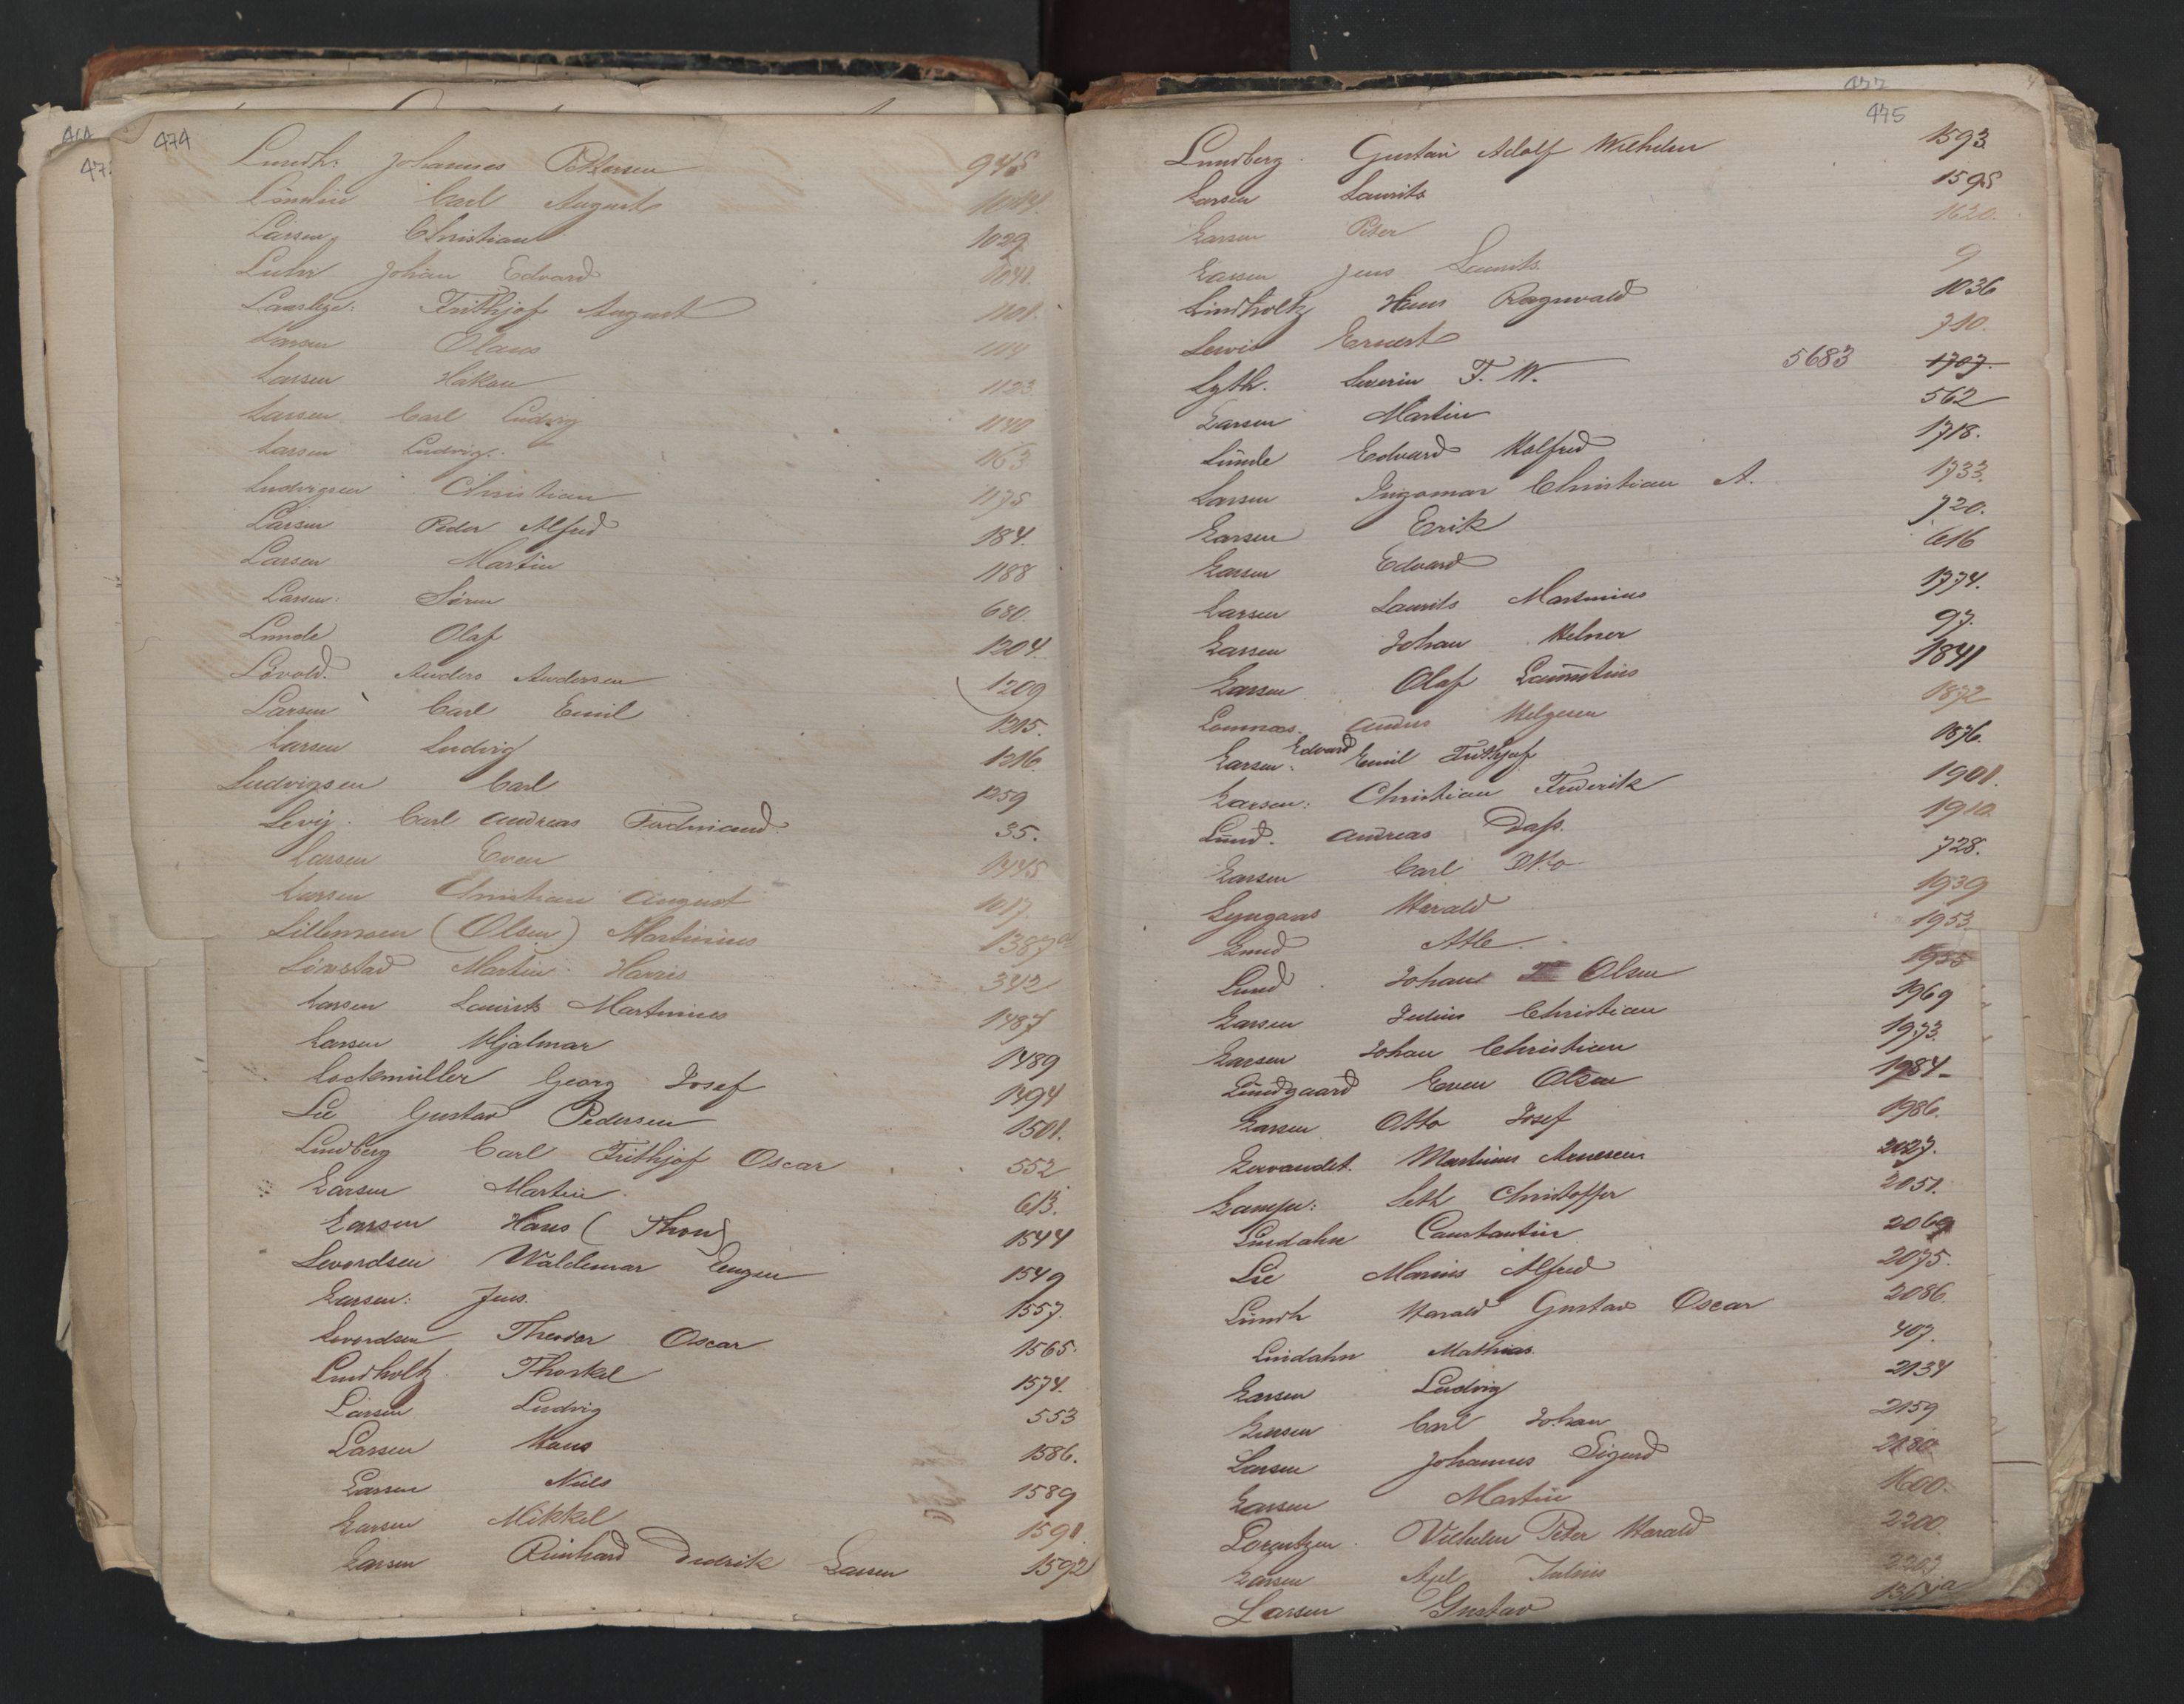 474
Lundh: Johannes Pettersen 948
Lindlin Carl August
Larsen Christian 1029
Luhr Johan Edvard 1041.
Frithjof August 1101.
Larsen Olaus 1114
Larsen Håkon 1123
Larsen Carl Ludvig 1140
Larsen Ludvig. 1163
Ludvigsen Christian 1175
Larsen Peder Alfred 184.
Larsen Martin 1188
Larsen: Sören 680.
Lunde Olaf 1204.
Lövold. Anders Andersen 1209
Larsen Carl Emil 1215.
Larsen Ludvig 1216.
Ludvigsen Carl 1259
Levij. Carl Andreas Ferdinand. 35.
Larsen Even 1445
Larsen Christian August 1017.
Lillemoen (Olsen) Martinius 1387a
Lönstad Martin Harris 342
Larsen Laurits Martinius 1487
Larsen Hjalmar 1489
Lockmüller Georg Josef 1494
Lie Gustav Pedersen 1501.
Lundberg Carl Frithjof Oscar 552
Larsen Martin. 613.
Larsen Hans (Thon) 1544
Levordsen Waldemar Eugen 1549
Larsen: Jens. 1557.
Levordsen Theodor Oscar 1565.
Lindholtz Thorkel 1574.
Larsen Ludvig 553
Larsen Hans 1586.
Larsen Niels 1589
Larsen Mikkel 1591.
Larsen Reinhard Diedrik Larsen 1592
475
Lundberg. Gustav Adolf Wilhelm 1593
Larsen Laurits 1598
Larsen Peter 1620.
Larsen Jens Laurits. 9
Lindholtz Hans Ragnvald 1036
Lewis Ernest 710.
Lyth. Severin F. W. 5683 1707.
Larsen Martin 562
Lunde Edvard Halfred 1718.
Larsen Ingomar Christian A. 1733.
Larsen Erik 720.
Larsen Edvard 616
Larsen Laurits Martinius 1774.
Larsen Johan Helner 97.
Larsen Olaf Laurentius 1841
Anders Helgesen 1872
Larsen: Edvard Emil Frithjof. 1876.
Larsen: Christian Frederik 1901.
Lund. Andreas Dass. 1910
Larsen Carl Otto 728.
Lyngaas Harald 1939
Lund Atle. 1953.
Lund Johan Olsen 1955
Larsen Julius Christian 1969
Larsen Johan Christian 1973.
Lundgaard Even Olsen 1984
Larsen Otto Josef 1986.
Lervandet. Martinus Arnesen 2027.
Seth Christoffer 2051.
Lindahn Constantin 2069
Lie Marius Alfred 2075.
Lundh Harald Gustav Oscar 2086.
Lindahn Mathias. 407.
Larsen Ludvig 2134
Larsen Carl Johan 2159
Larsen Johannes Sigurd 2180
Larsen Martin 1600.
Lorentzen. Vilhelm Peter Harald 2200.
Larsen Axel Julius 2207
Larsen Gustav 1364a